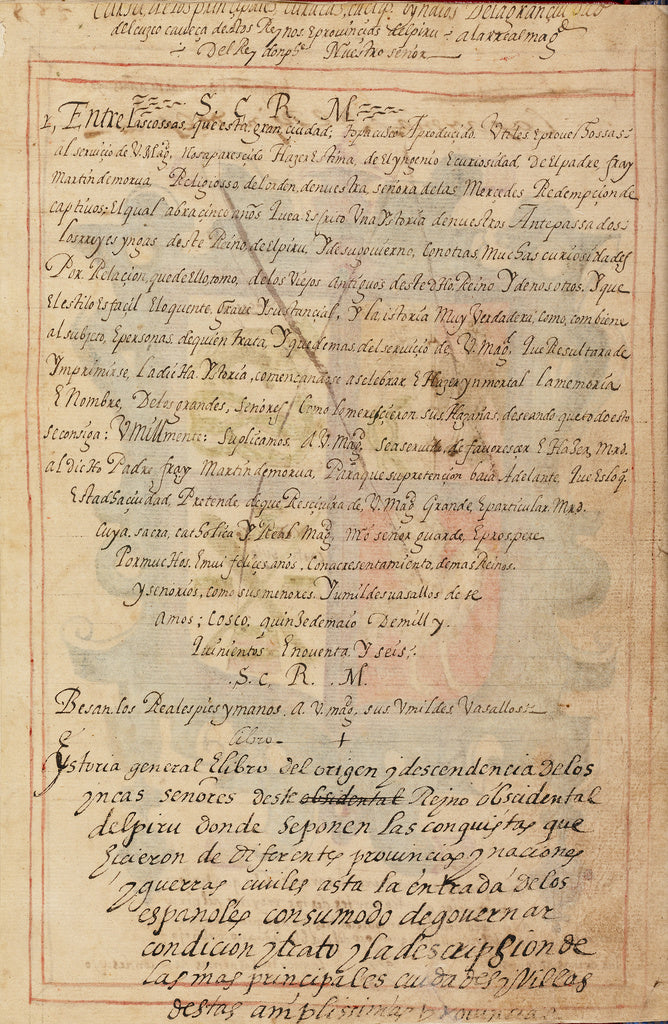 Carta, delos principales curacas, caciq. yngaos Delagranciudad
delcuzco caveça destos Reynos Eprovincias delpiru - alarreal mag.d
Del Rey donph.e Nuestro señor
S. C. R. M.
Entre, lascossas, que esta, gran, ciudad, topa cusco A producido. Utiles Eprovechossas
al servicio de V. Mag. nosaparescido Hazer Estima, de El yngenio Ecuriosidad, De El padre, fray
Martin demorua, Religiosso, del orden, de nuestra, señora de las Mercedes Redempcion de
captivos; El qual abra cinco años Quea Escrito Una Ystoria denuestros Antepassados
Los rreyes yngas deste Reino de El piru, Ydesugovierno, Conotras, Muchas curiosidades
Por. Relacion, que de Ello, tomo, de los Viejos Antiguos deste Dho. Reino Y denosotros. Y que
El estilo Es facil Eloquente, Grave Ysustancial, Y la istoria Muy Verdadera, como, combiene
al subjeto, Epersonas, dequien trata, Y que demas, del servicio de V. Mag. Que Resultara de
Ymprimirse, La dicHa Ystoria, començandose acelebrar E Hazer ynmortal la memoria
E Nombre, De los grandes, Señores Como lo merescieron sus Hazañas, deseando que todo esto
se consiga: VMillmente: Suplicamos. A V. Mag. Sea servido, de favorescer E Hazer, Mrd.
al DicHo Padre fray Martin demorua, Para que su pretencion baia Adelante, Que Es lo q.
Esta dHa ciudad, Pretende, deque, Rescivira de, V. Mag. Grande, Eparticular Mrd.
Cuya, sacra, catholica Y Real Mag. nro señor guarde, Eprospere
Por mucHos. Emui felices años, Con acrescentamiento, demas Reinos.
Y señorios, como sus menores. Yumildes vasallos de se
Amos; Cosco, quinze de maio De mill y.
Quinientos Enoventa Y seis.
.S. C. R. M.
Besan los Reales pies y manos, A. V. mag. sus Vmildes Vasallos
Libro - +
Ystoria general Elibro del origen y descendencia de los
yncas señores deste obsidental Reino obscidental
delpiru donde se ponen las conquistas que
hicieron de diferentes provincias y naciones
y guerras civiles asta la entrada de los
españoles con su modo de governar
condición y trato y la descripsion de
las mas principales ciudades y Villas
destas amplissimas provincias